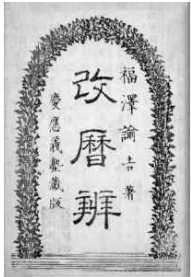 福澤諭吉著
改曆辨
慶應義塾藏版